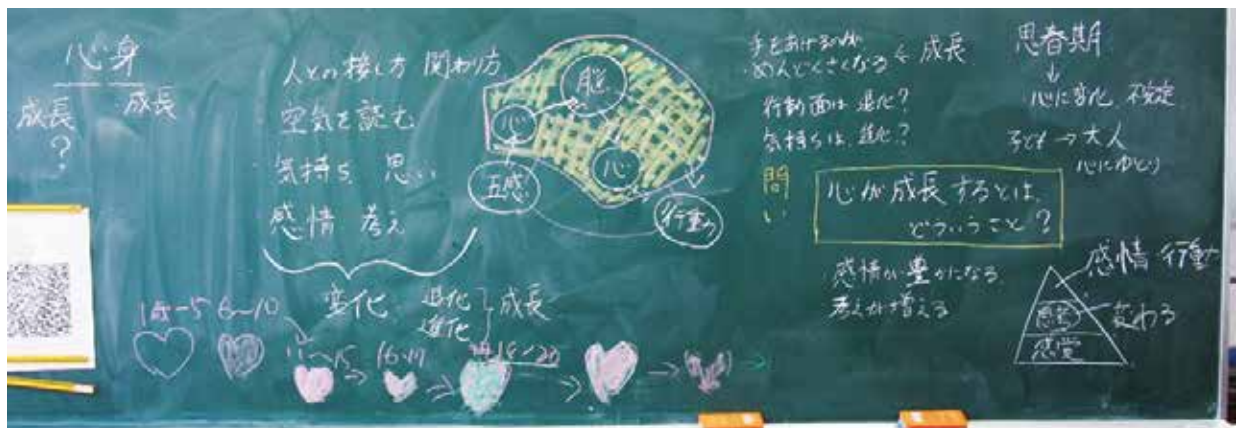 心身
成長 成長
?
人との接し方 関わり方
空気を読む
気持ち 思い
感情 考え
変化 退化 進化 成長
脳
心
心
五感
行動
1才〜5 6〜10
11〜15
16・17
18〜20
手をあげるのが
めんどくさくなる ← 成長
行動面は退化?
気持ちは、進化?
問い
心が成長するとは、
どういうこと?
感情が豊かになる
考えが増える
思春期
↓
心に変化 不安定
子ども → 大人
心にゆとり
感情・行動
思考 変わる
感覚